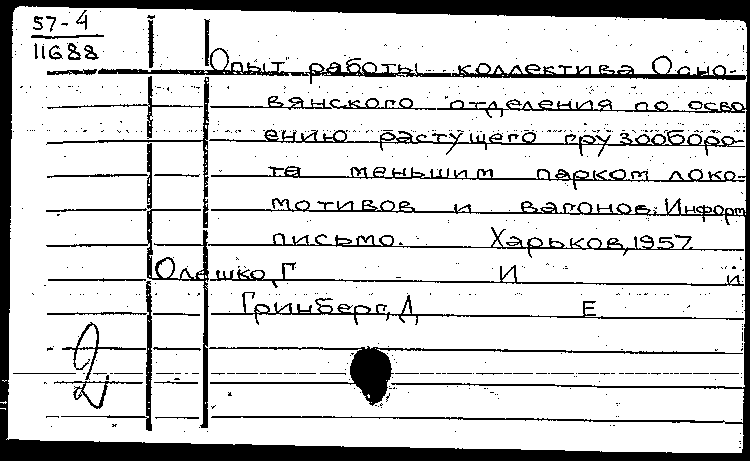 57-4
11688
Опыт работы коллектива Осно-
вянского отделения по осво
ению растущего грузооборо-
та меньшим парком локо-
мотивов и вагонов. Информ
письмо. Харьков, 1957.
Олешко, Г И и
Гринберг, Д Е
2